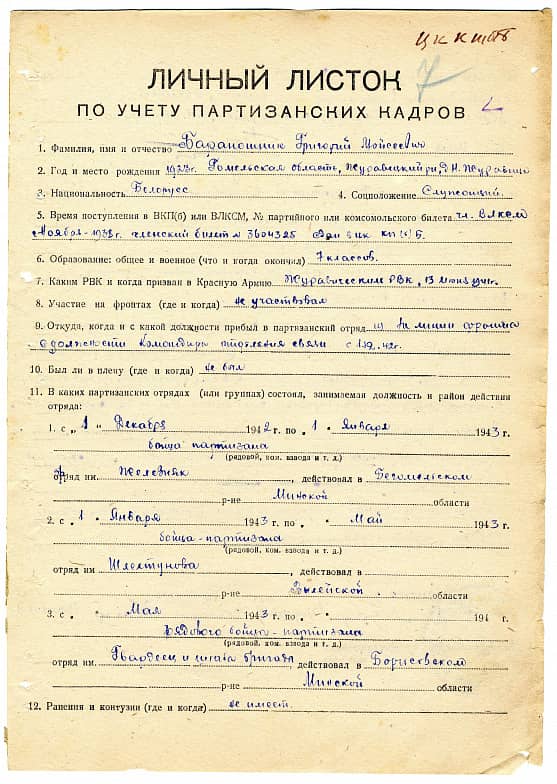 7
ЛИЧНЫЙ ЛИСТОК
ПО УЧЕТУ ПАРТИЗАНСКИХ КАДРОВ
1. Фамилия, имя и отчество Григорий Мойсеевич
2. Год и место рождения 1923г. Гомельская область, Журавицкий
3. Национальность Белорус 4. Соцположение Служащий.
5. Время поступления в ВКП(б) или ВЛКСМ, № партийного или комсомольского билета чл. ВЛКСМ
Ноября 1938г. членский билет № КП(б)Б.
6. Образование: общее и военное (что и когда окончил) 7 классов.
7. Каким РВК и когда призван в Красную Армию Журавическим РВК, 13 1941г.
8. Участие на фронтах (где и когда) не участвовал
9. Откуда, когда и с какой должности прибыл в партизанский отряд из
с должности Командира отделения связи с 42г.
10. Был ли в плену (где и когда) не был
11. В каких партизанских отрядах (или группах) состоял, занимаемая должность и район действия
отряда:
1. с „ 1 " Декабря 1942 г. по „ 1 " Января 1943 г.
бойца партизана
(рядовой, ком. взвода и т. д.)
отряд им. Железняк действовал в Бегомльском
р-не Минской области
2. с „ 1 " Января 1943 г. по „ " Май 1943 г.
бойца-партизана
(рядовой, ком. взвода и т. д.)
отряд им действовал в
р-не Вилейской области
3. с „ " Мая 1943 г. по „ " 194 г.
Рядового бойца-партизана
(рядовой, ком. взвода и т. д.)
отряд им. Гвардеец бригады действовал в Борисовском
р-не Минской области
12. Ранения и контузии (где и когда) не имеет.